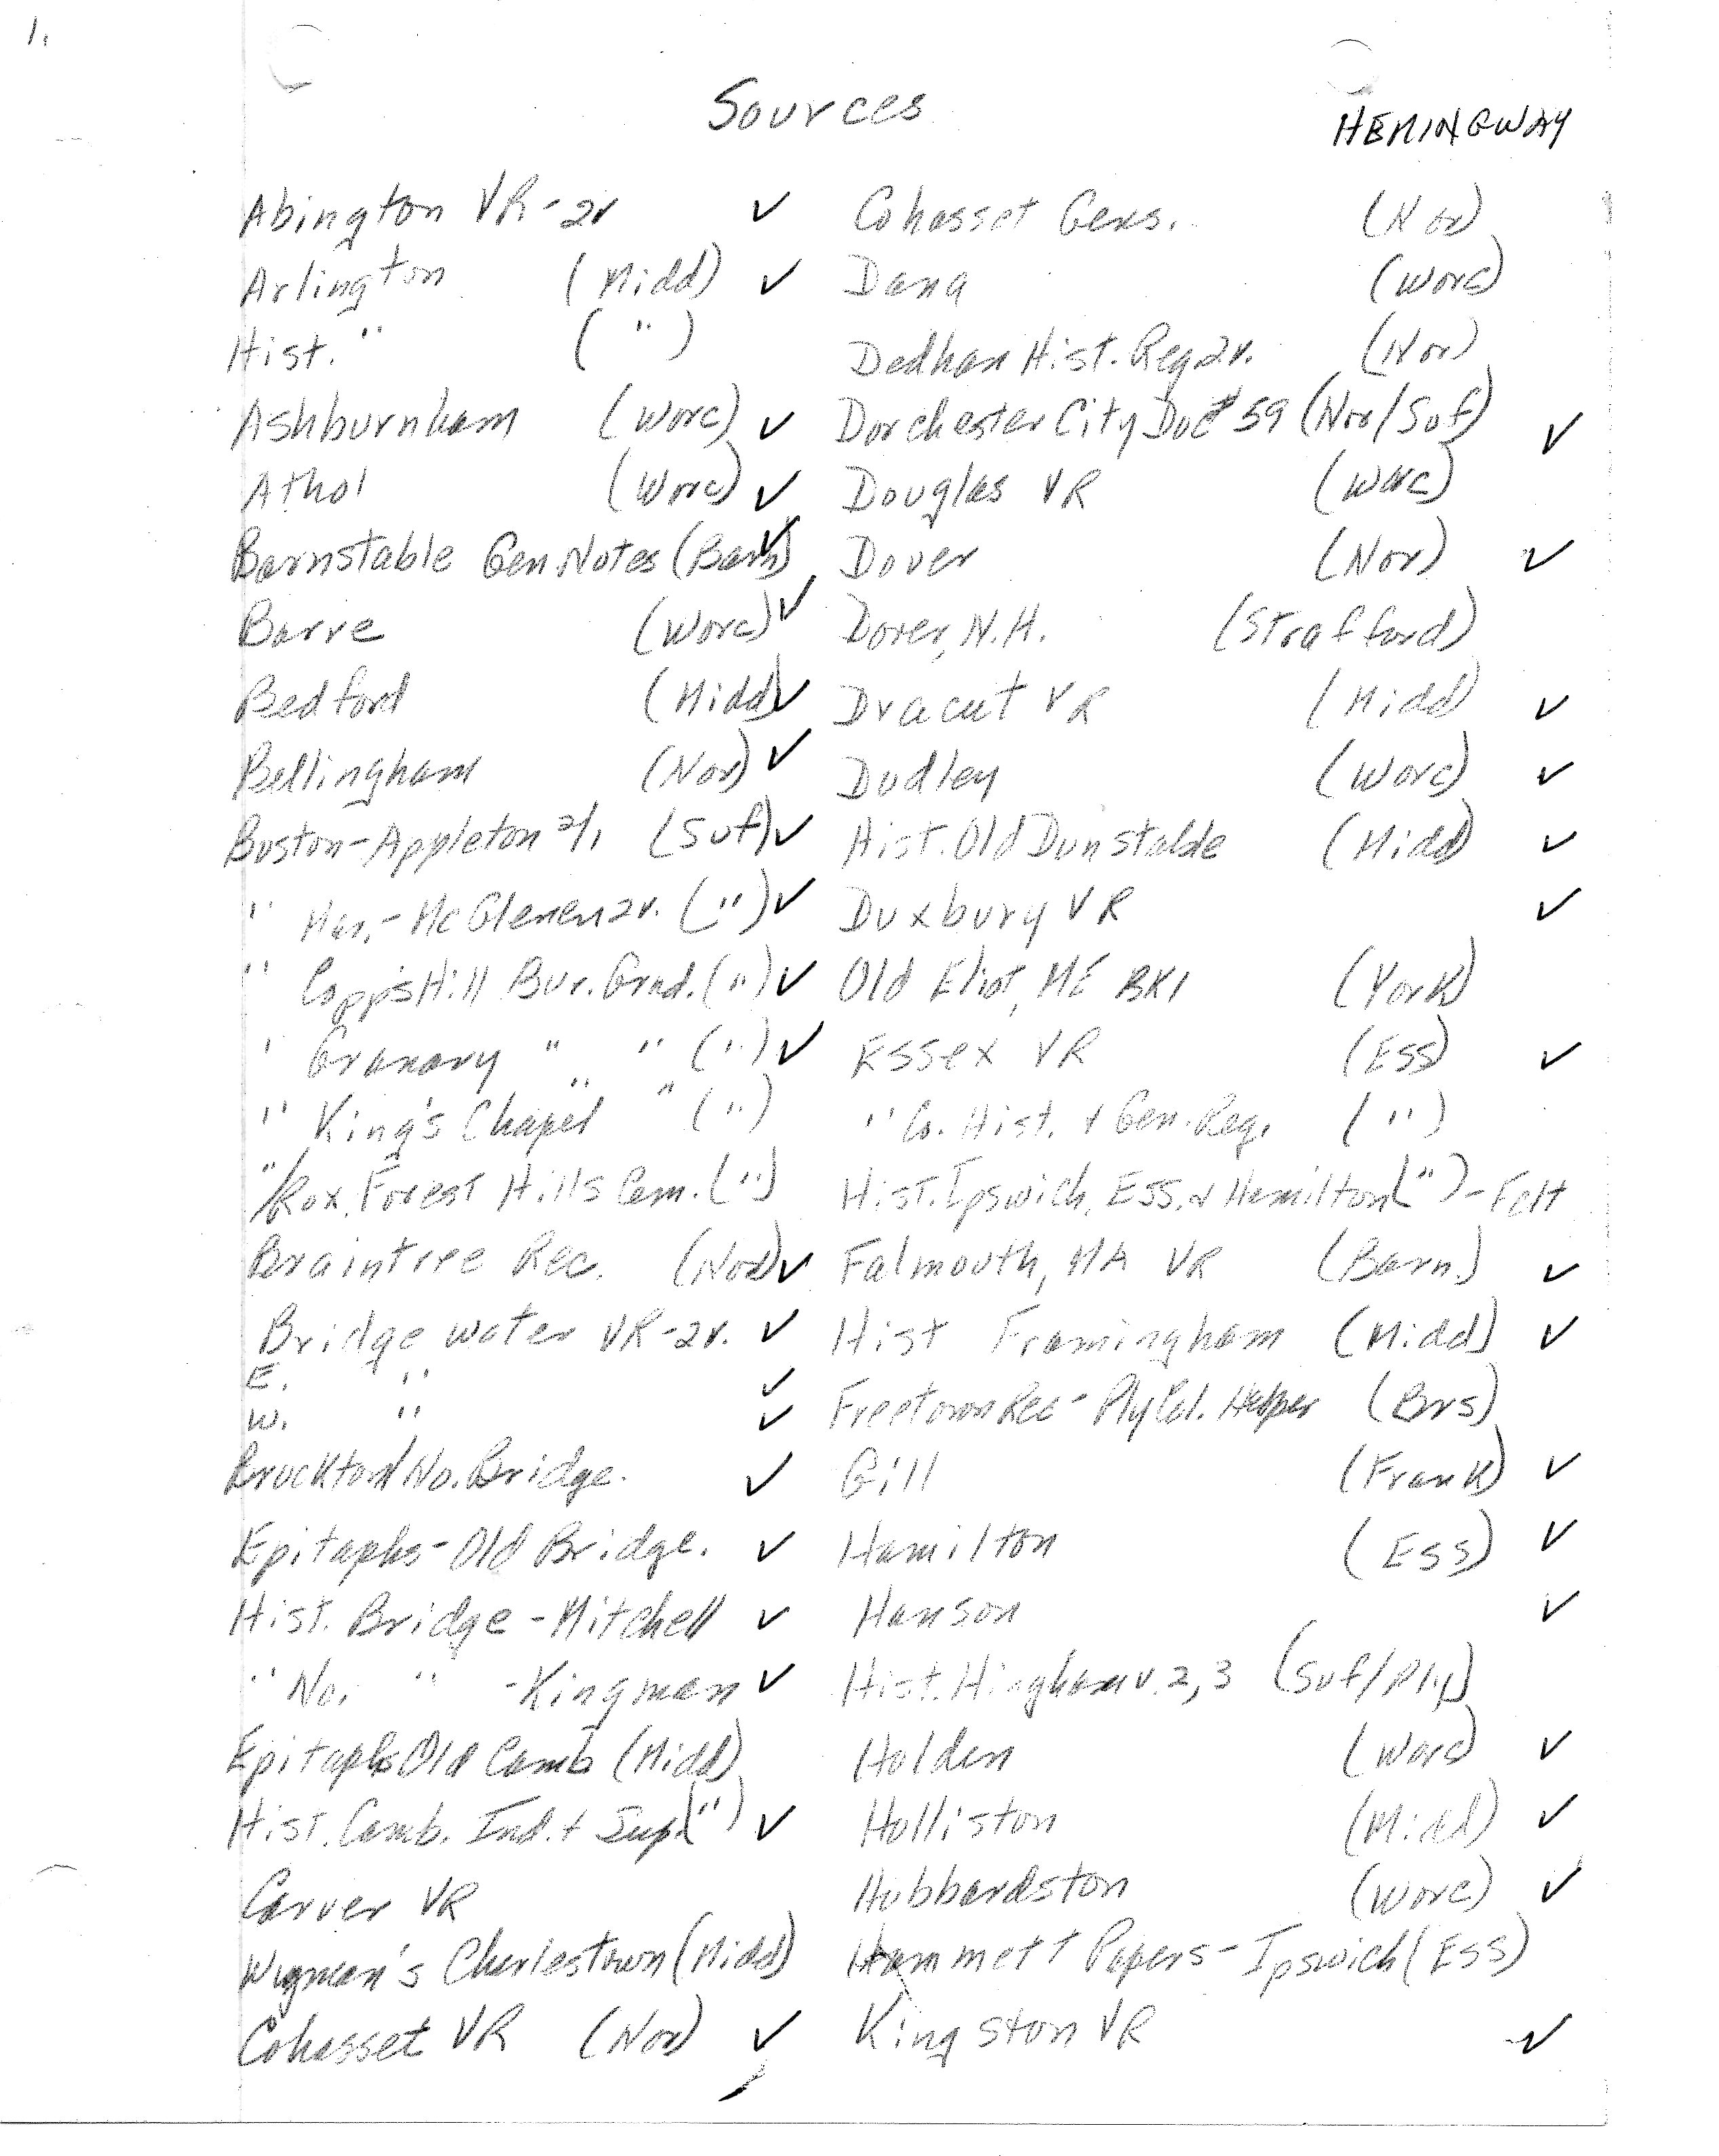 1.
Sources
HEMINGWAY
Abington VR-2v ✓
Arlington (Midd) ✓
Hist. " ( " )
Ashburnham (Worc) ✓
Athol (Worc) ✓
Barnstable Gen. Notes (Barn) ✓
Barre (Worc) ✓
Bedford (Midd) ✓
Bellingham (Nor) ✓
Boston-Appleton 2/1 (Suf) ✓
" Mar.- McGlenen 2v. (") ✓
" Copp's Hill Bur. Grnd. (") ✓
" Granary " " (") ✓
" King's Chapel " " (")
"/Rox. Forest Hills Cem. (")
Braintree Rec. (Nor) ✓
Bridgewater VR-2v. ✓
E. " ✓
W. " ✓
Brockton/No. Bridge. ✓
Epitaphs-Old Bridge. ✓
Hist. Bridge-Mitchell ✓
" No. " -Kingman ✓
Epitaphs Old Camb (Midd)
Hist. Camb. Ind. + Sup. (") ✓
Carver VR
Wyman's Charlestown (Midd)
Cohasset VR (Nor) ✓
Cohasset Gens. (Nor)
Dana (Worc)
Dedham Hist. Reg 2v. (Nor)
Dorchester City Doc # 59 (Nor/Suf) ✓
Douglas VR (Worc)
Dover (Nor) ✓
Dover, N.H. (Strafford)
Dracut VR (Midd) ✓
Dudley (Worc) ✓
Hist. Old Dunstable (Midd) ✓
Duxbury VR ✓
Old Eliot, ME BK1 (York)
Essex VR (Ess) ✓
" Co. Hist. + Gen. Reg. (")
Hist. Ipswich, Ess. + Hamilton (") - Felt
Falmouth, MA VR (Barn.) ✓
Hist Framingham (Midd) ✓
Freetown Rec - Ply Col. Helper (Brs)
Gill (Frank) ✓
Hamilton (Ess) ✓
Hanson ✓
Hist. Hingham v. 2, 3 (Suf/Ply)
Holden (Worc) ✓
Holliston (Midd) ✓
Hubbardston (Worc) ✓
Hammett Papers - Ipswich (Ess)
Kingston VR ✓